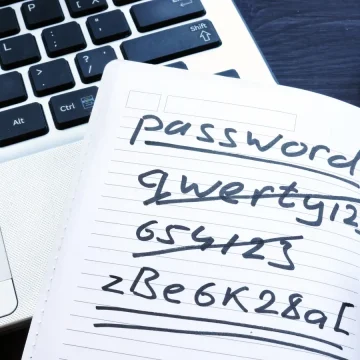 P
L
:
;
"
'
Enter
>
.
?
/
Shift
Alt
Ctrl
password
qwerty123
654123
zBe6K28a[